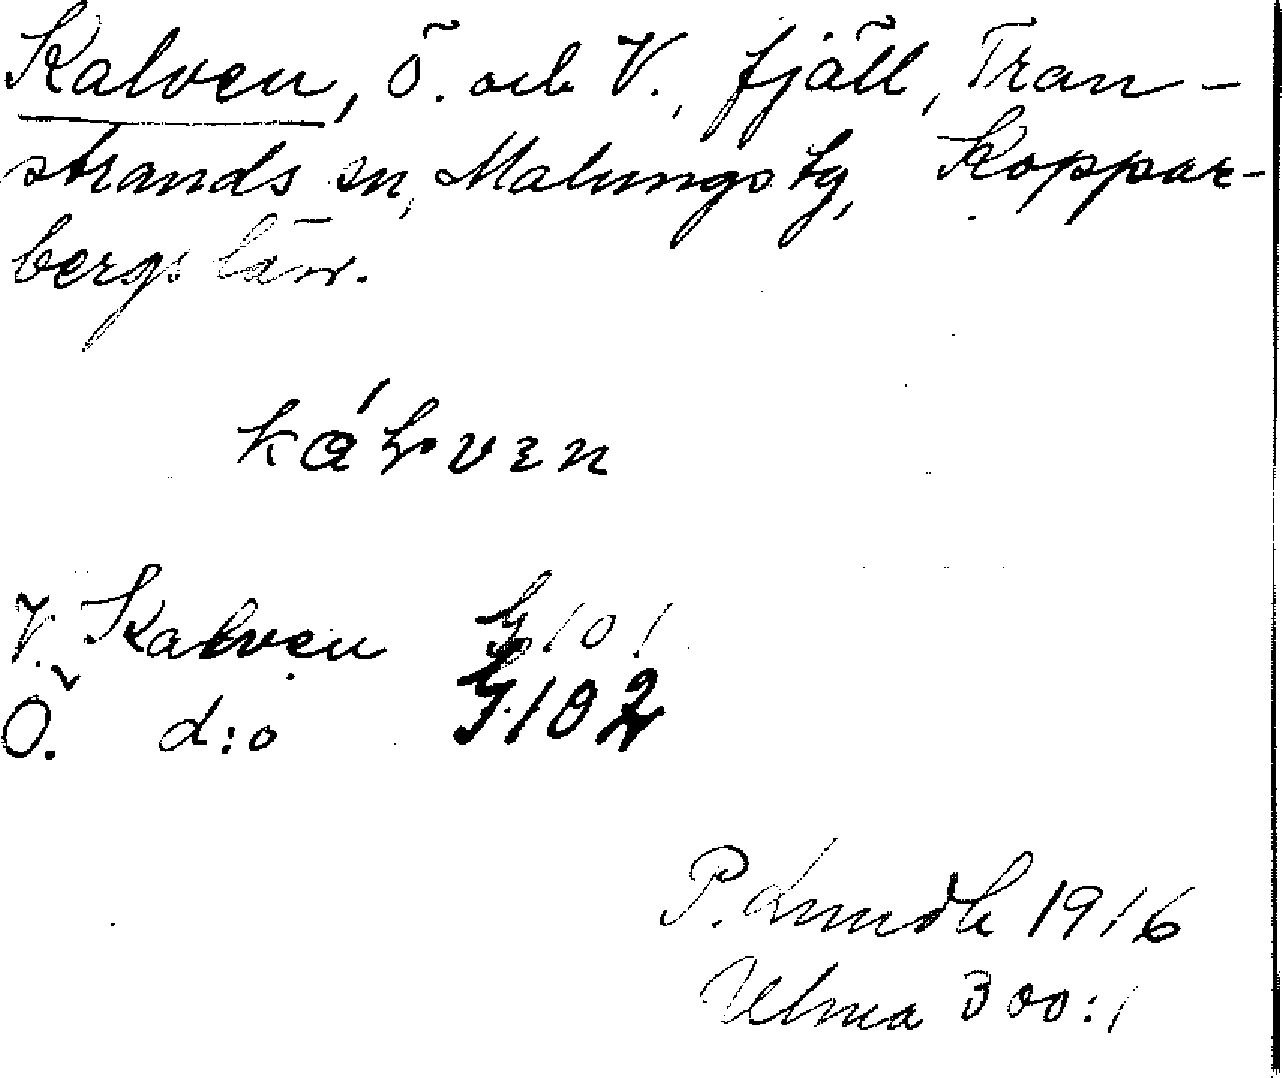 Kalven, Ö. och V., fjäll, Tran-
strands sn, Malungs tg, Koppar-
bergs län.
V. Kalven G 101
Ö. d:o G 102
P. Lundh 1916
Ulma 300:1